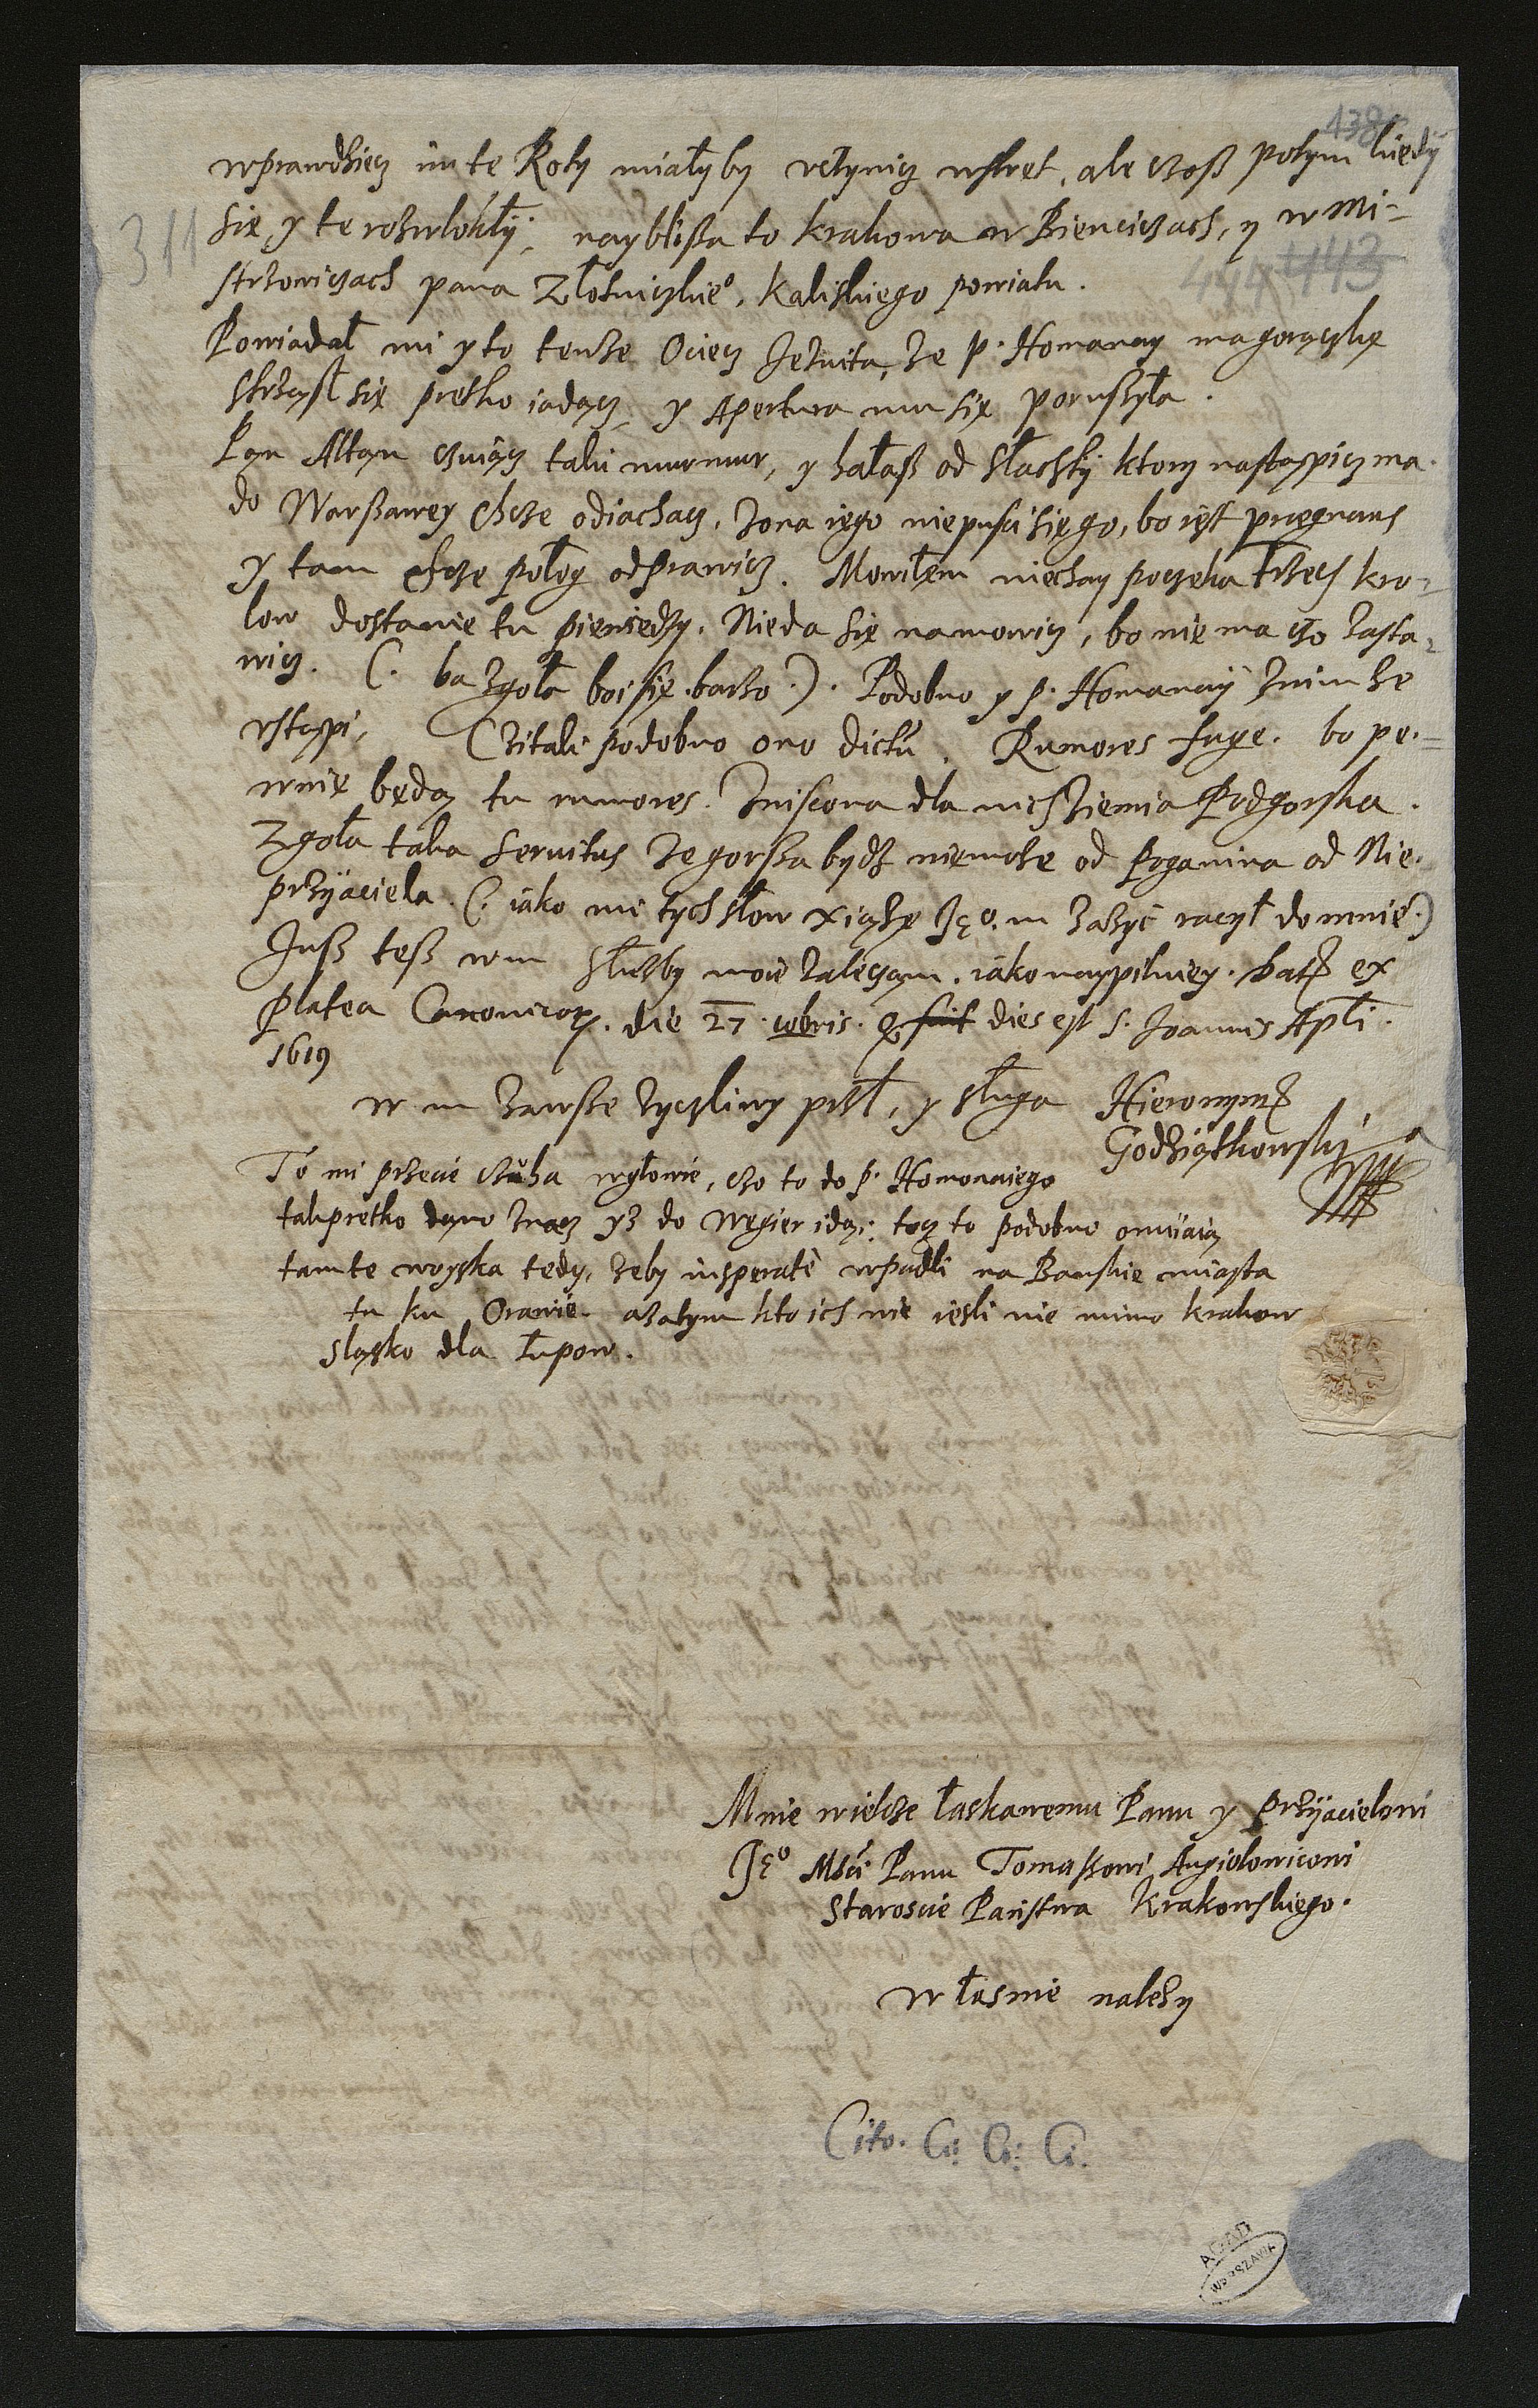 438
wprawdziecz im te Roty miałyby vczynicz wstręt, ale czoß potym kiedy
się y te rozwlokły; nayblißa to krakowa w Bienciczach, y w Mi-
strzowiczach pana Złotniczkie⁰, kaliskiego powiatu.
311
444 443
Powiadał mi y to tenze Ociecz Jezuita, ze p. Homanay ma gorączkę
strząsł się prętko iadącz, y Apertura mu się poruszyła.
Pan Altan czuiącz taki murmur, y hałaß od słachty ktory nastąpicz ma
do Warßawey chcze odiachacz, zona iego nie pusci się go, bo iest prægnans
y tam chcze połog odprawicz. Mowiłem niechay poczeka trzech kro-
low dostanie tu pieniedzy. Nieda się namowicz, bo nie ma czo zasta-
wicz. (. ba zgoła boi się barzo.). Podobno y p. Homanay znim ze
vstąpi, Czitali podobno ono dictũ. Rumores fuge. bo pe-
wnie będą tu rumores. Zniscona dla nich ziemia Podgorska.
Zgoła taka servitus ze gorßa bydz niemoze od Poganina od Nie-
przÿaciela. (. iako mi tych słow xiąze Je⁰. m zazyć racył do mnie.)
Juß teß wm słuzby moie zaleczam. iako naypilniey. Datꝫ ex
Platea Canonicoꝝ. die 27. xbris. q̨ fuit dies est S. Joannis Apłi.
1619
w m zawsze zyczliwy przł, y sługa Hieronymꝫ
Godziątkowski
To mi przecie czuha w głowie, czo to do p. Homonaiego
tak pretko dano znacz yz do Węgier idą; tocz to podobno omiiaią
tamte woyska tedy, zeby insperatè wpadli na Banskie miasta
tu ku Orawie. a zatym kto ich wie iesli nie mimo krakow
sląsko dla łupow.
Mnie wielcze łaskawemu Panu y Przÿacielowi
Je⁰ Mści Panu Tomaßowi Angielowiconi
Staroscie Państwa Krakowskiego.
własnie nalezy
Cito. Ci: Ci: Ci.
AGAD
WARSZAWA